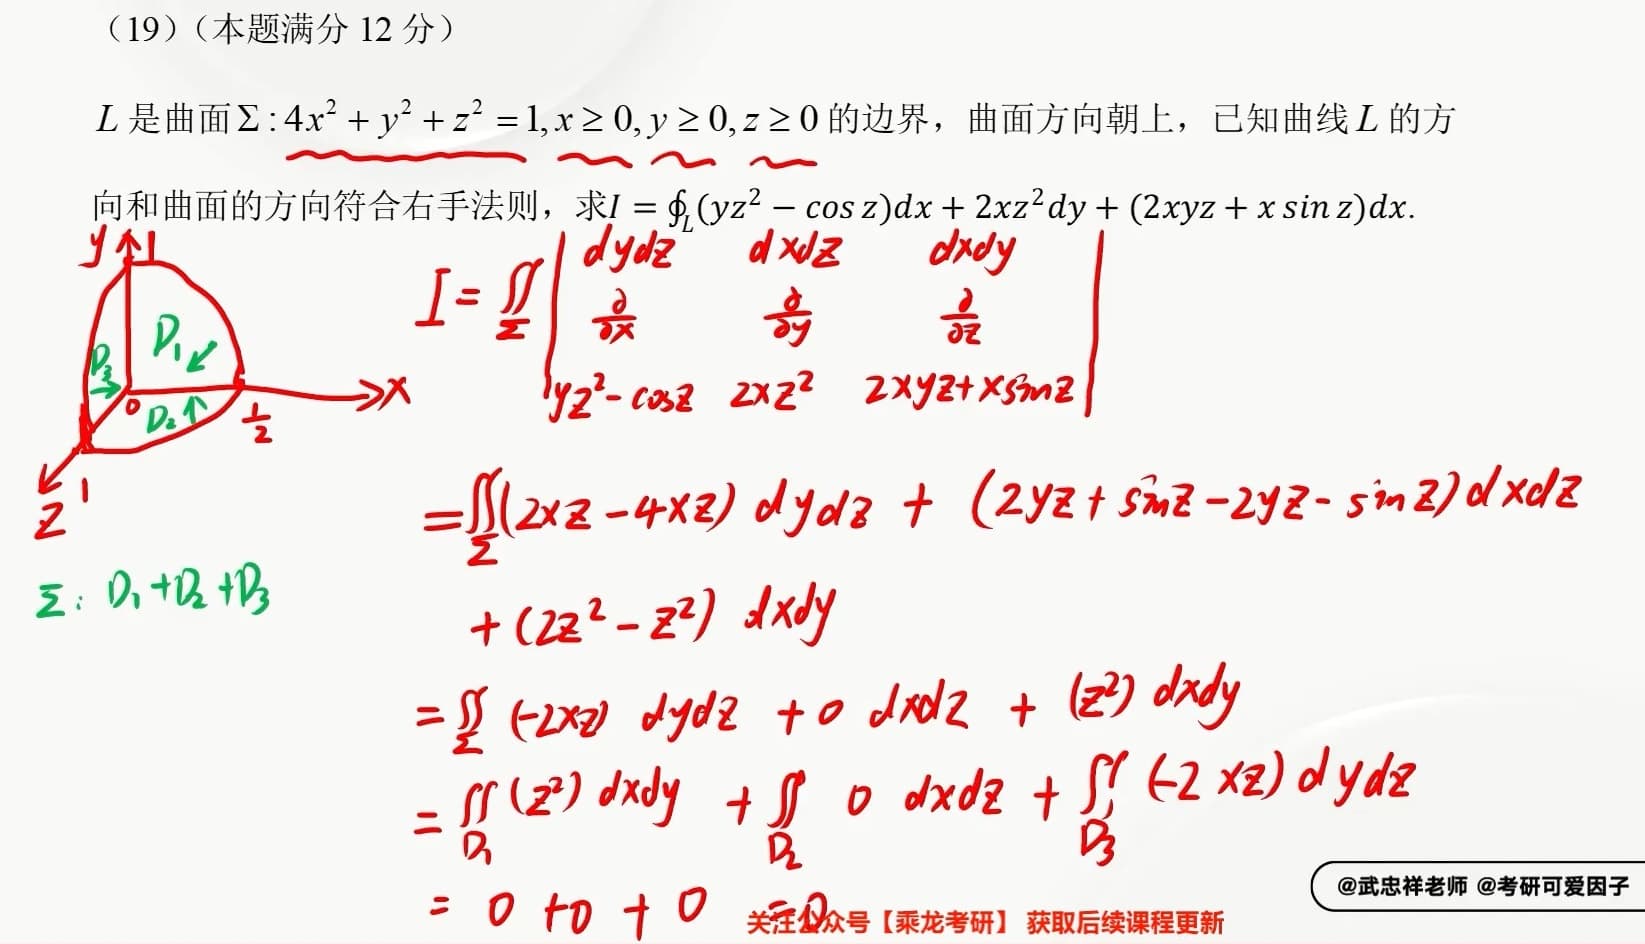 （19）（本题满分 12 分）
L 是曲面Σ : 4x² + y² + z² = 1, x ≥ 0, y ≥ 0, z ≥ 0 的边界，曲面方向朝上，已知曲线 L 的方
向和曲面的方向符合右手法则，求I = ∮_L (yz² − cos z)dx + 2xz²dy + (2xyz + x sin z)dx.
y 1
D₁
D₃
D₂
0
x
1/2
z 1
Σ: D₁+D₂+D₃
I = ∬_Σ | dydz dxdz dxdy
∂/∂x ∂/∂y ∂/∂z
yz²-cosz 2xz² 2xyz+xsinz |
= ∬_Σ (2xz-4xz) dydz + (2yz+sinz-2yz-sinz) dxdz
+ (2z²-z²) dxdy
= ∬_Σ (-2xz) dydz + 0 dxdz + (z²) dxdy
= ∬_D₁ (z²) dxdy + ∬_D₂ 0 dxdz + ∬_D₃ (-2xz) dydz
= 0 + 0 + 0 = 0
@武忠祥老师 @考研可爱因子
关注公众号【乘龙考研】 获取后续课程更新